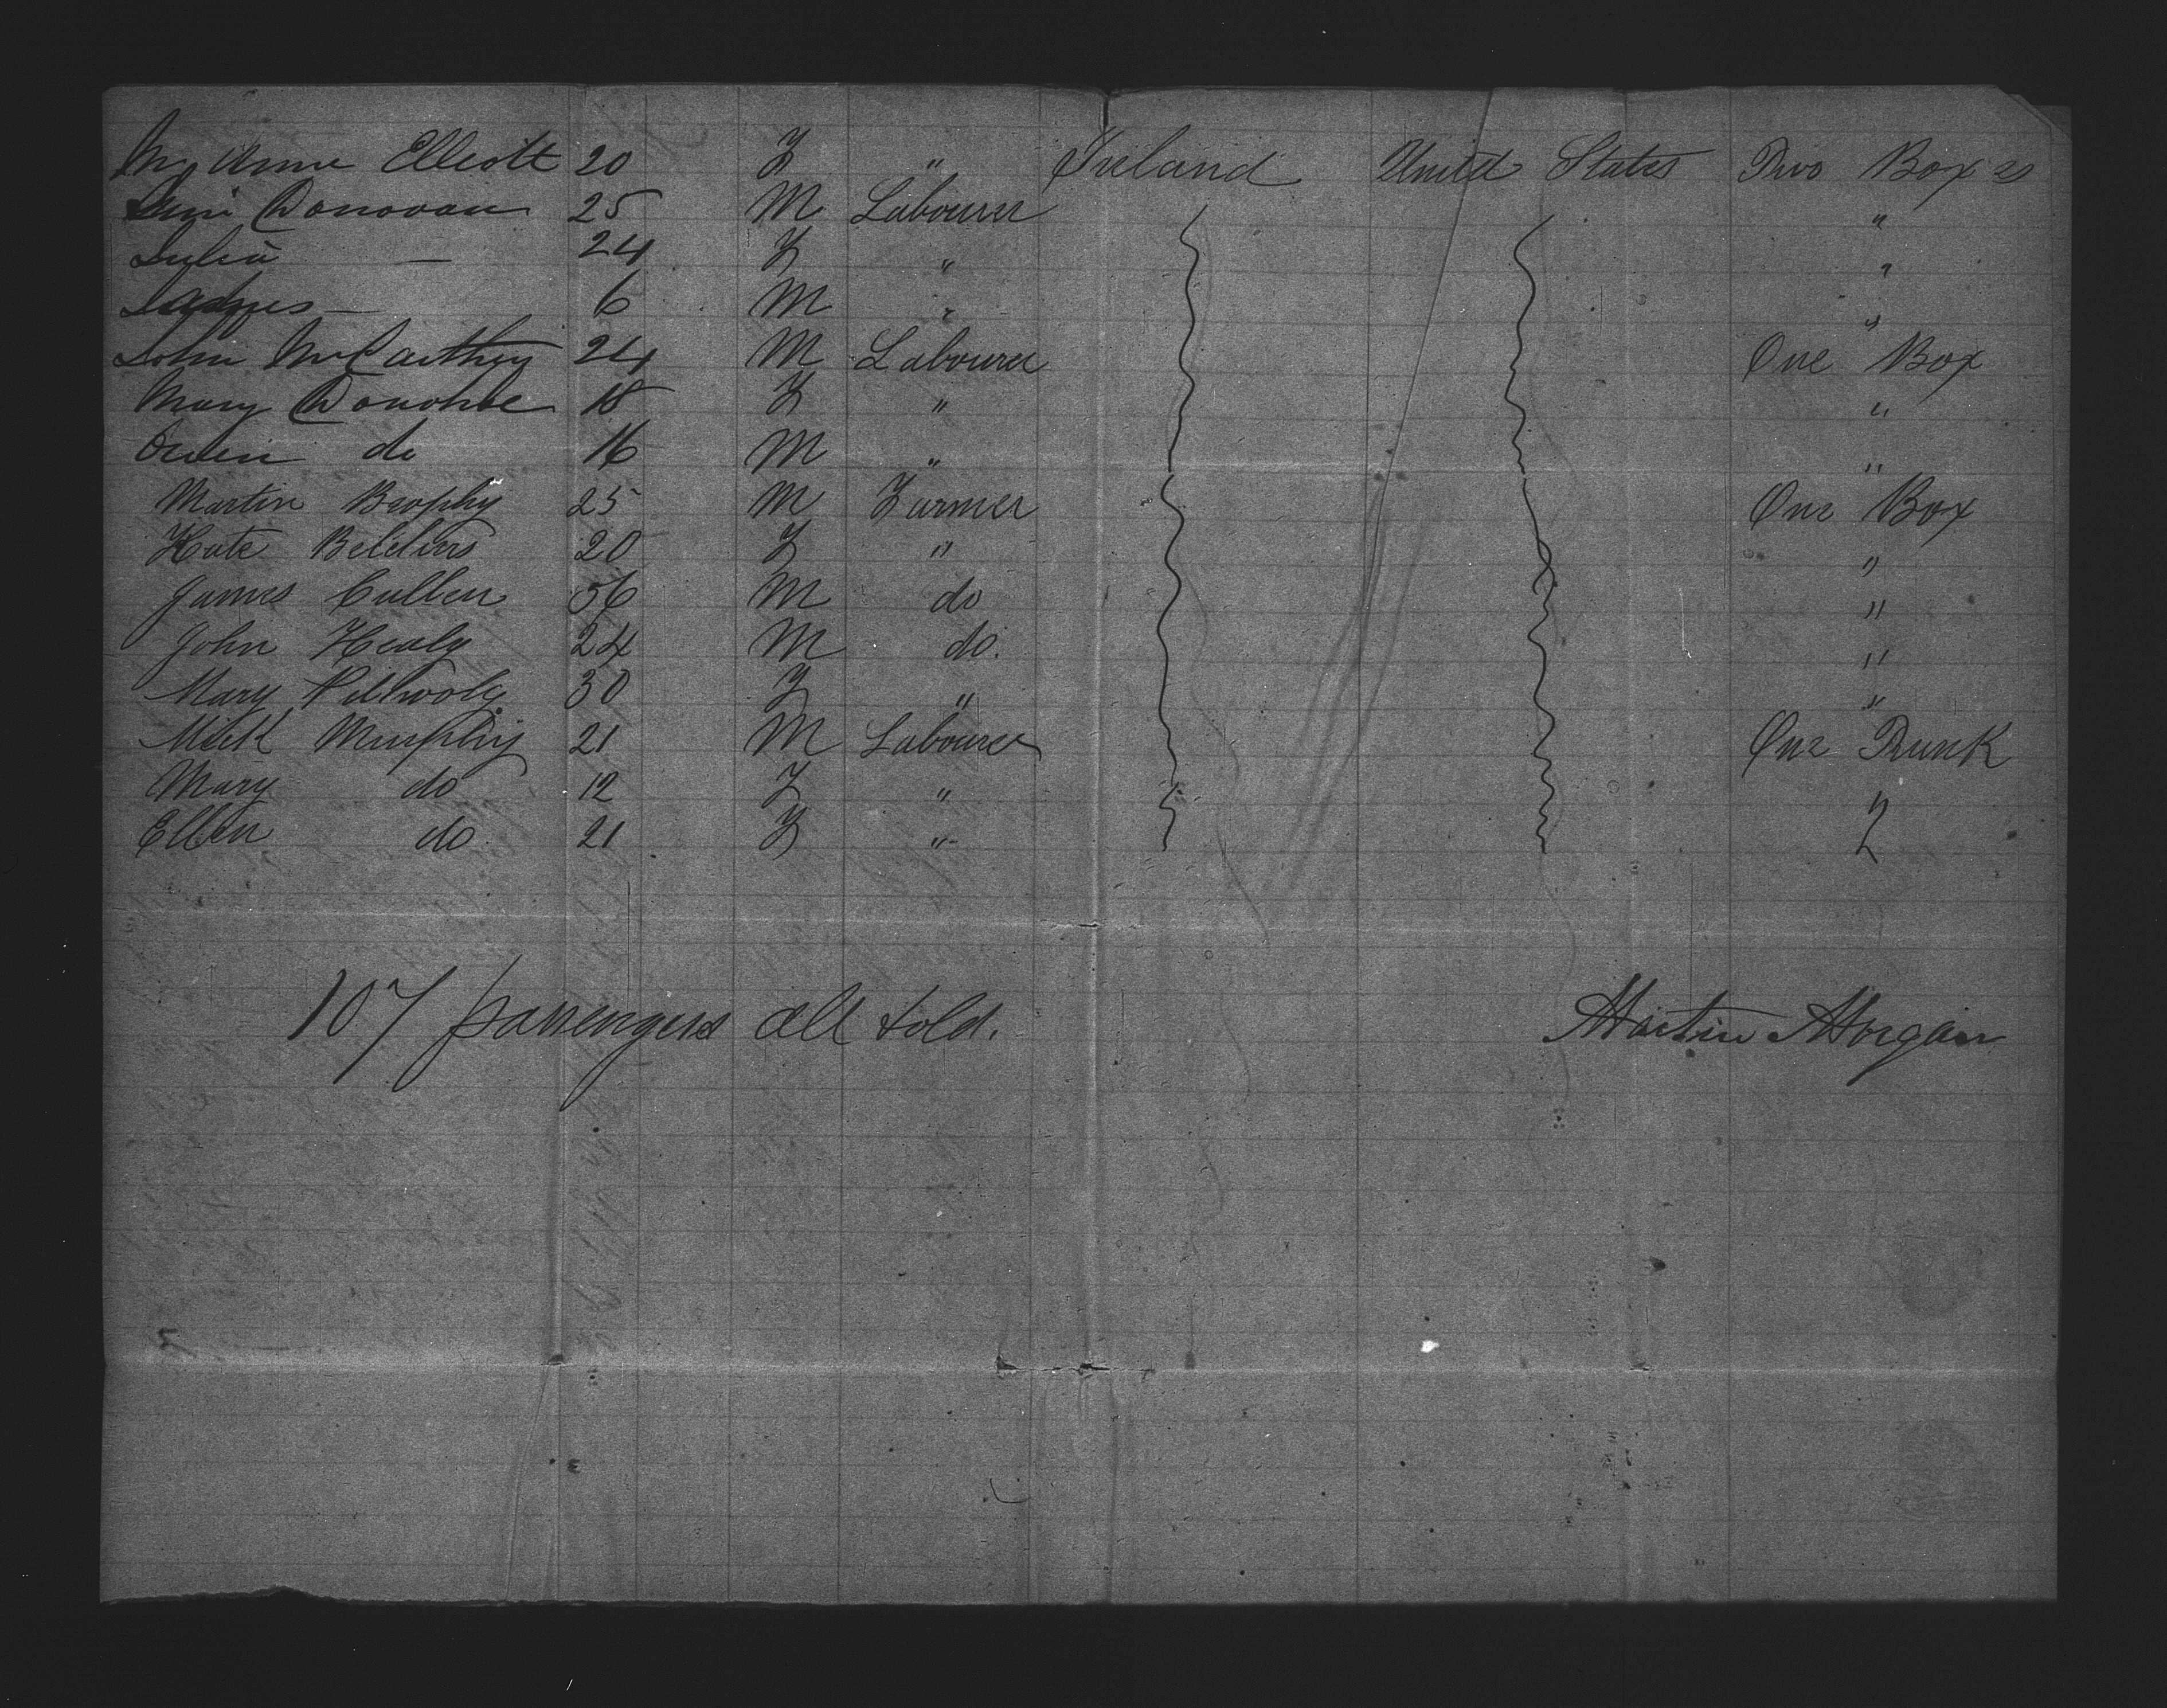 My Anne Elliott 20 F " Ireland United States Two Boxes
Donovan 25 M Labourer "
Julia — 24 F " "
James — 6 M " "
John McCarthy 24 M Labourer One Box
Mary Donohoe 18 F " "
Owen do 16 M " "
Martin Brophy 25 M Farmer One Box
Kate 20 F " "
James Cullen 56 M do "
John Healy 24 M do. "
Mary 30 F " "
Murphy 21 M Labourer One Trunk
Mary do 12 F " "
Ellen do 21 F "
107 passengers all told.
Martin Morgan